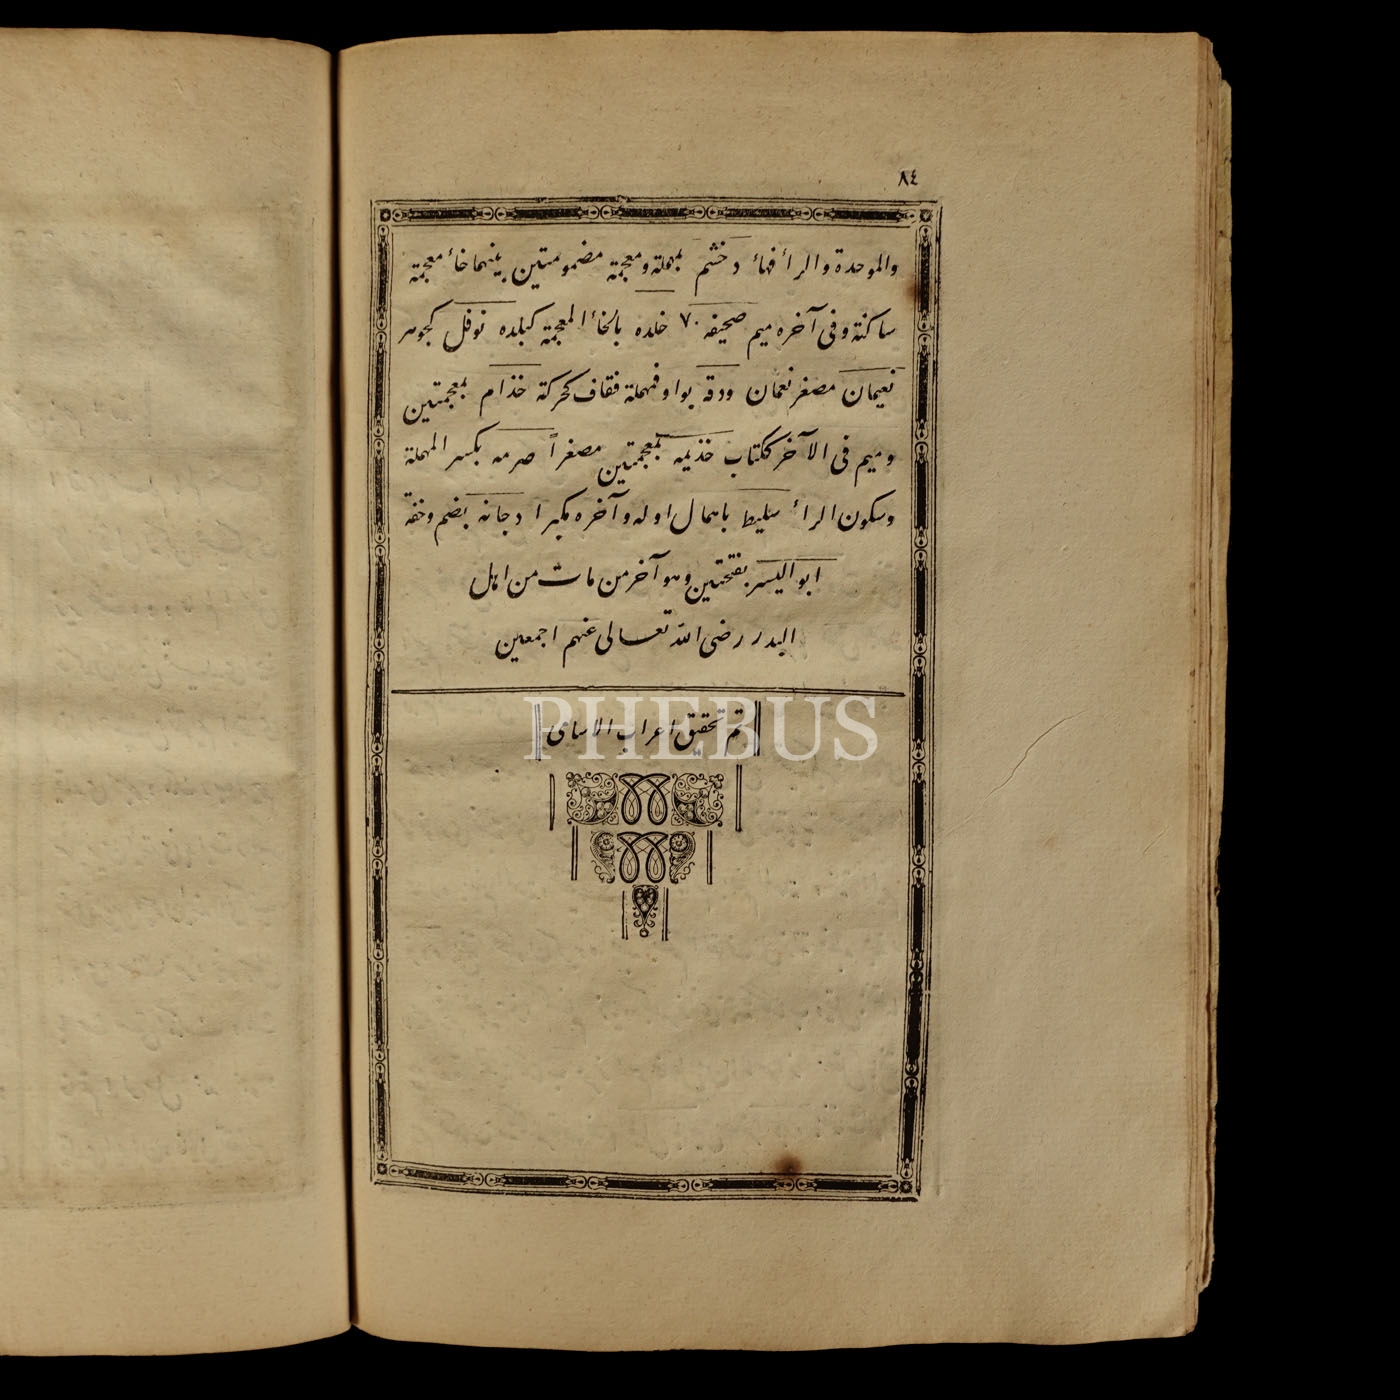 ٨٤
والموحدة والرأ فهأ دخشم بمهملة ومعجمة مضمومتين بينهما خأ معجمة
ساكنة وفى آخره ميم صحيفه ٧٠ خلده بالخأ المعجمة كبلده نوفل كجوهر
نعيمان مصغر نعمان ودقة بواو فمهملة فقاف كحركة خذام بمعجمتين
وميم فى الآخر ككتاب خذيمه بمعجمتين مصغراً صرمه بكسر المهملة
وسكون الرأ سليط باهمال اوله وآخره مكبرا دجانه بضم وخفة
ابو اليسر بفتحتين وهو آخر من مات من اهل
البدر رضى الله تعالى عنهم اجمعين
تم تحقيق اعراب الاسامى
PHEBUS